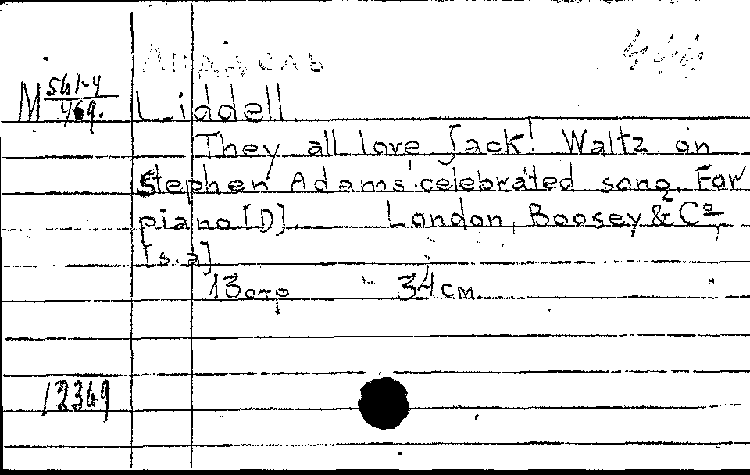 M 561-4
Liddell
They all love Jack! Waltz on
Stephen Adams' celebrated song. For
piano [D]. London, Boosey & Cº
[s.a]
13 стр 34 см.
12369